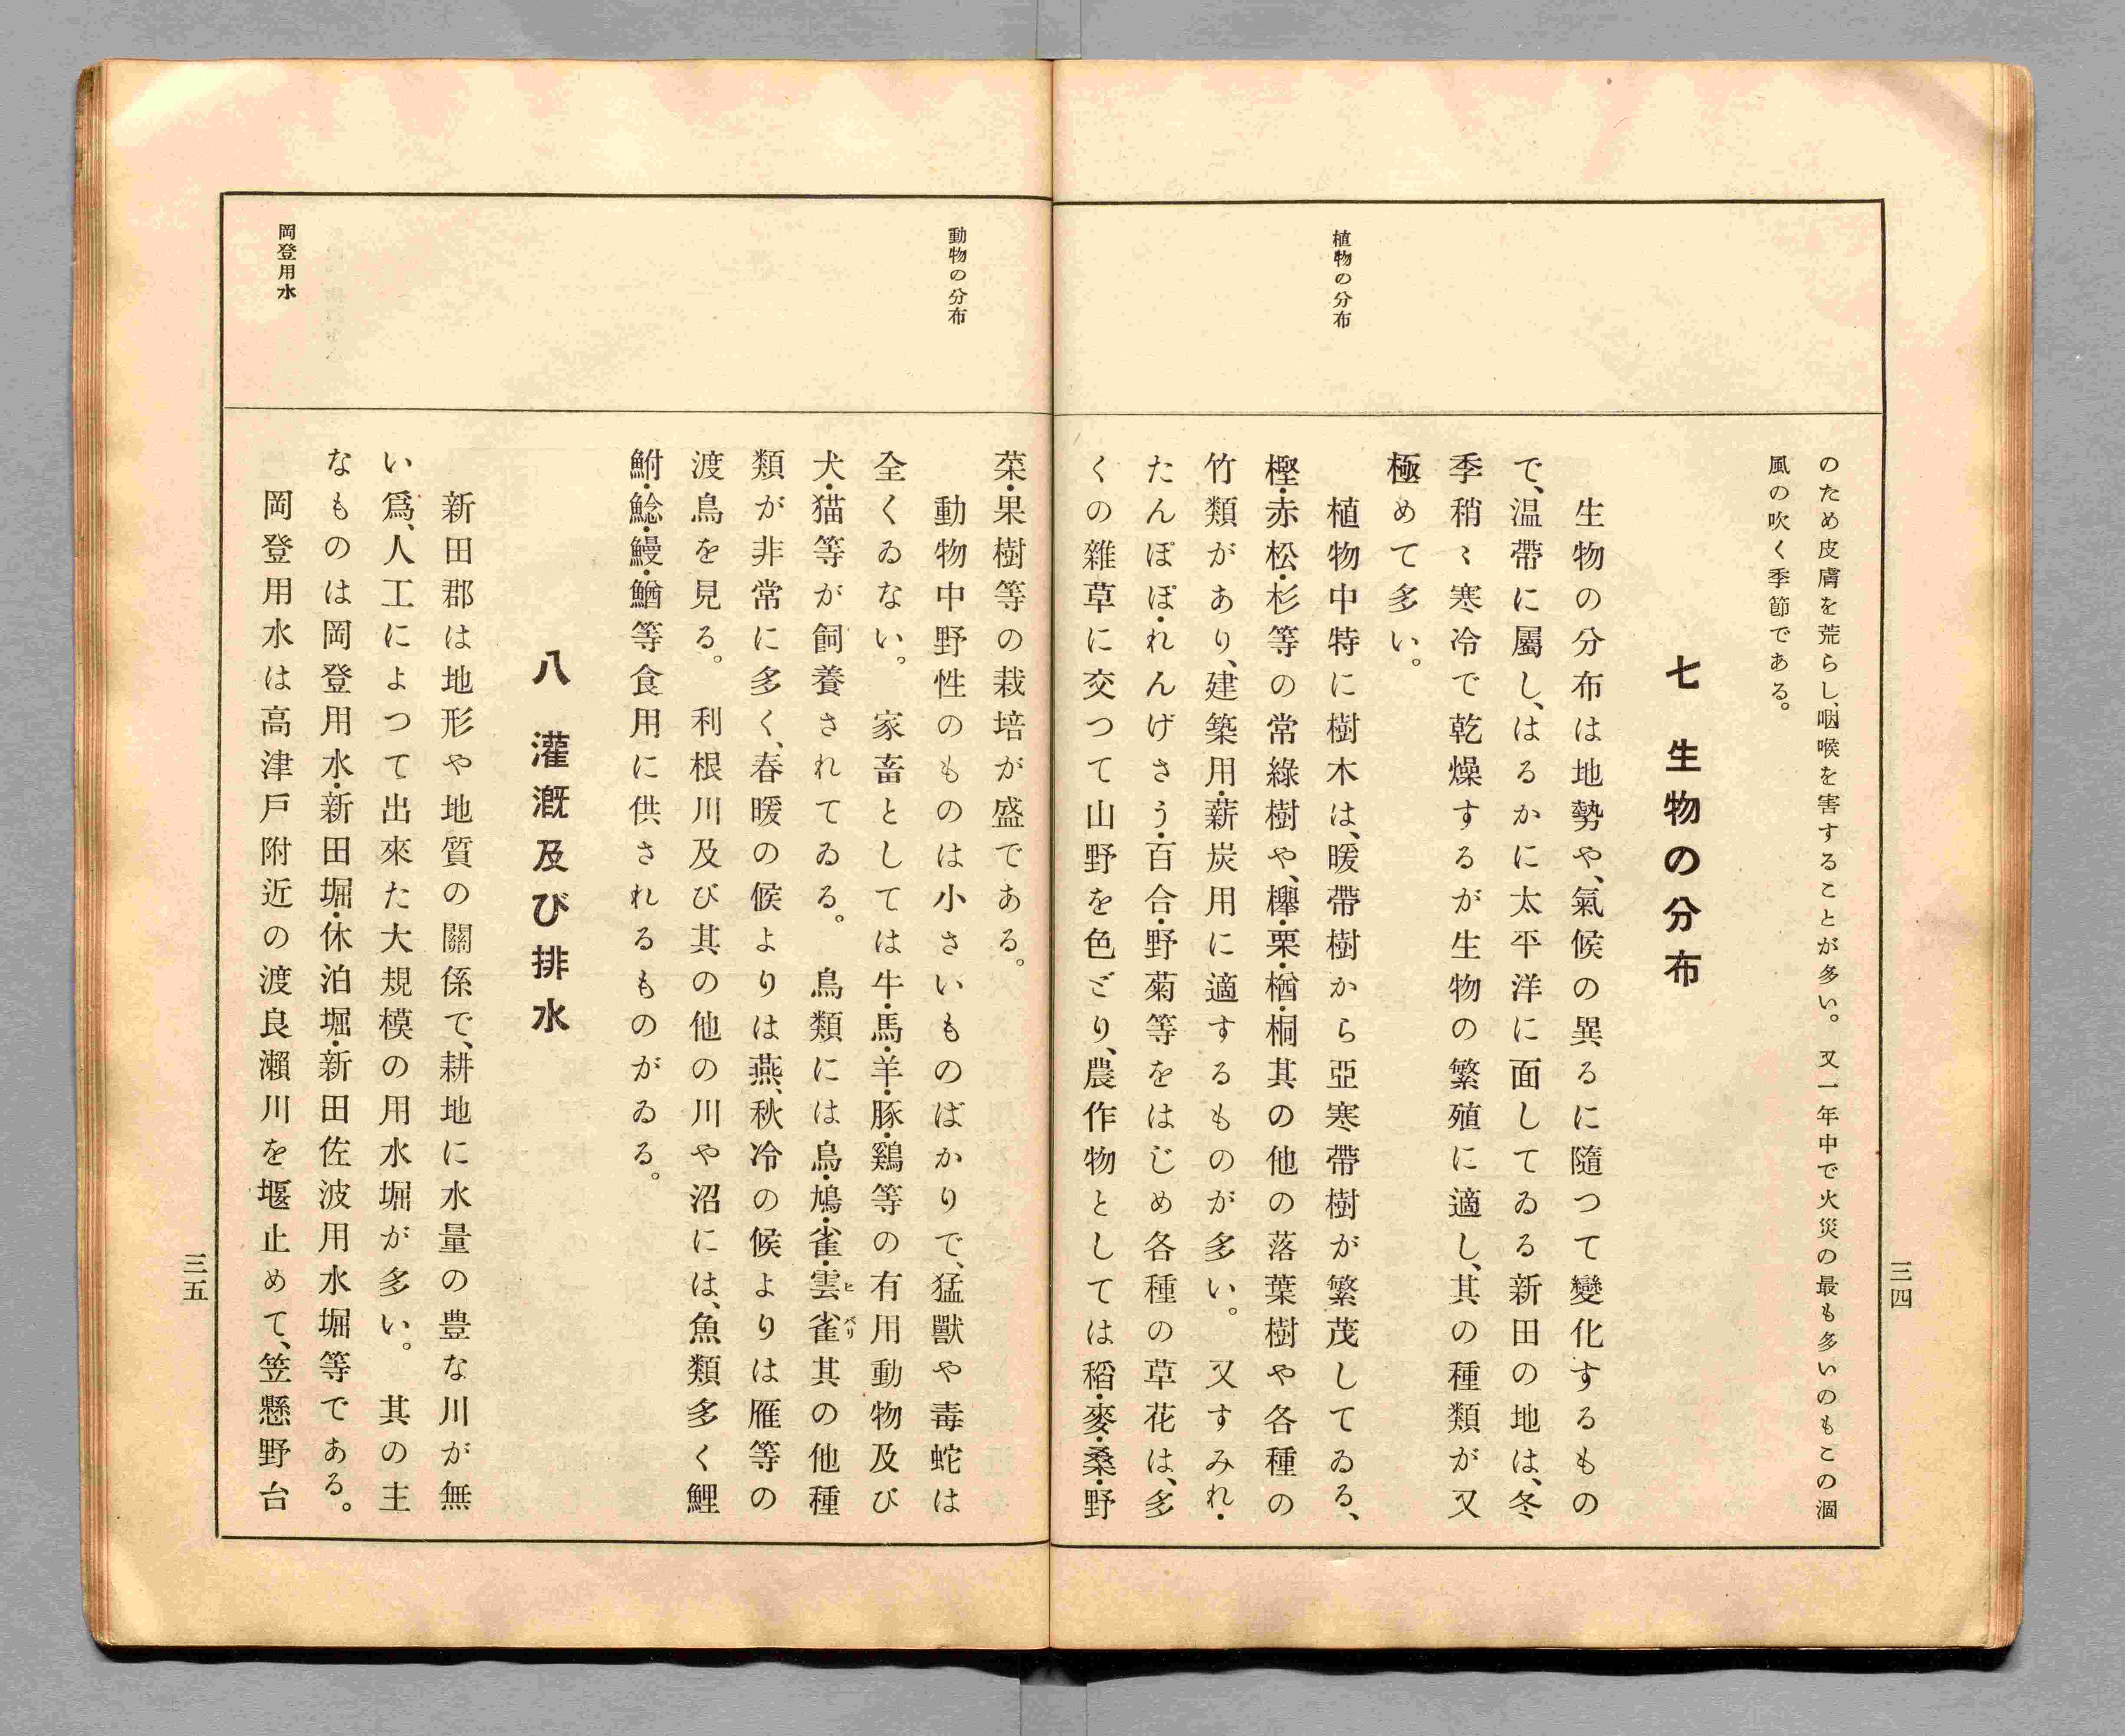 のため皮膚を荒らし、咽喉を害することが多い。又一年中で火災の最も多いのもこの涸
風の吹く季節である。
七 生物の分布
生物の分布は地勢や、氣候の異るに隨つて變化するもの
で、温帶に屬し、はるかに太平洋に面してゐる新田の地は、冬
季稍〻寒冷で乾燥するが生物の繁殖に適し、其の種類が又
極めて多い。
植物の分布
植物中特に樹木は、暖帶樹から亞寒帶樹が繁茂してゐる、
樫・赤松・杉等の常綠樹や、欅・栗・楢・桐其の他の落葉樹や各種の
竹類があり、建築用・薪炭用に適するものが多い。又すみれ・
たんぽぽ・れんげさう・百合・野菊等をはじめ各種の草花は、多
くの雜草に交つて山野を色どり、農作物としては稻・麥・桑・野
三四
菜・果樹等の栽培が盛である。
動物の分布
動物中野性のものは小さいものばかりで、猛獸や毒蛇は
全くゐない。家畜としては牛・馬・羊・豚・鷄等の有用動物及び
犬・猫等が飼養されてゐる。鳥類には烏・鳩・雀・雲雀其の他種
ヒバリ
類が非常に多く、春暖の候よりは燕、秋冷の候よりは雁等の
渡鳥を見る。利根川及び其の他の川や沼には、魚類多く鯉
鮒・鯰・鰻・鰌等食用に供されるものがゐる。
八 灌漑及び排水
新田郡は地形や地質の關係で、耕地に水量の豊な川が無
い爲、人工によつて出來た大規模の用水堀が多い。其の主
なものは岡登用水・新田堀・休泊堀・新田佐波用水堀等である。
岡登用水
岡登用水は高津戸附近の渡良瀨川を堰止めて、笠懸野台
三五